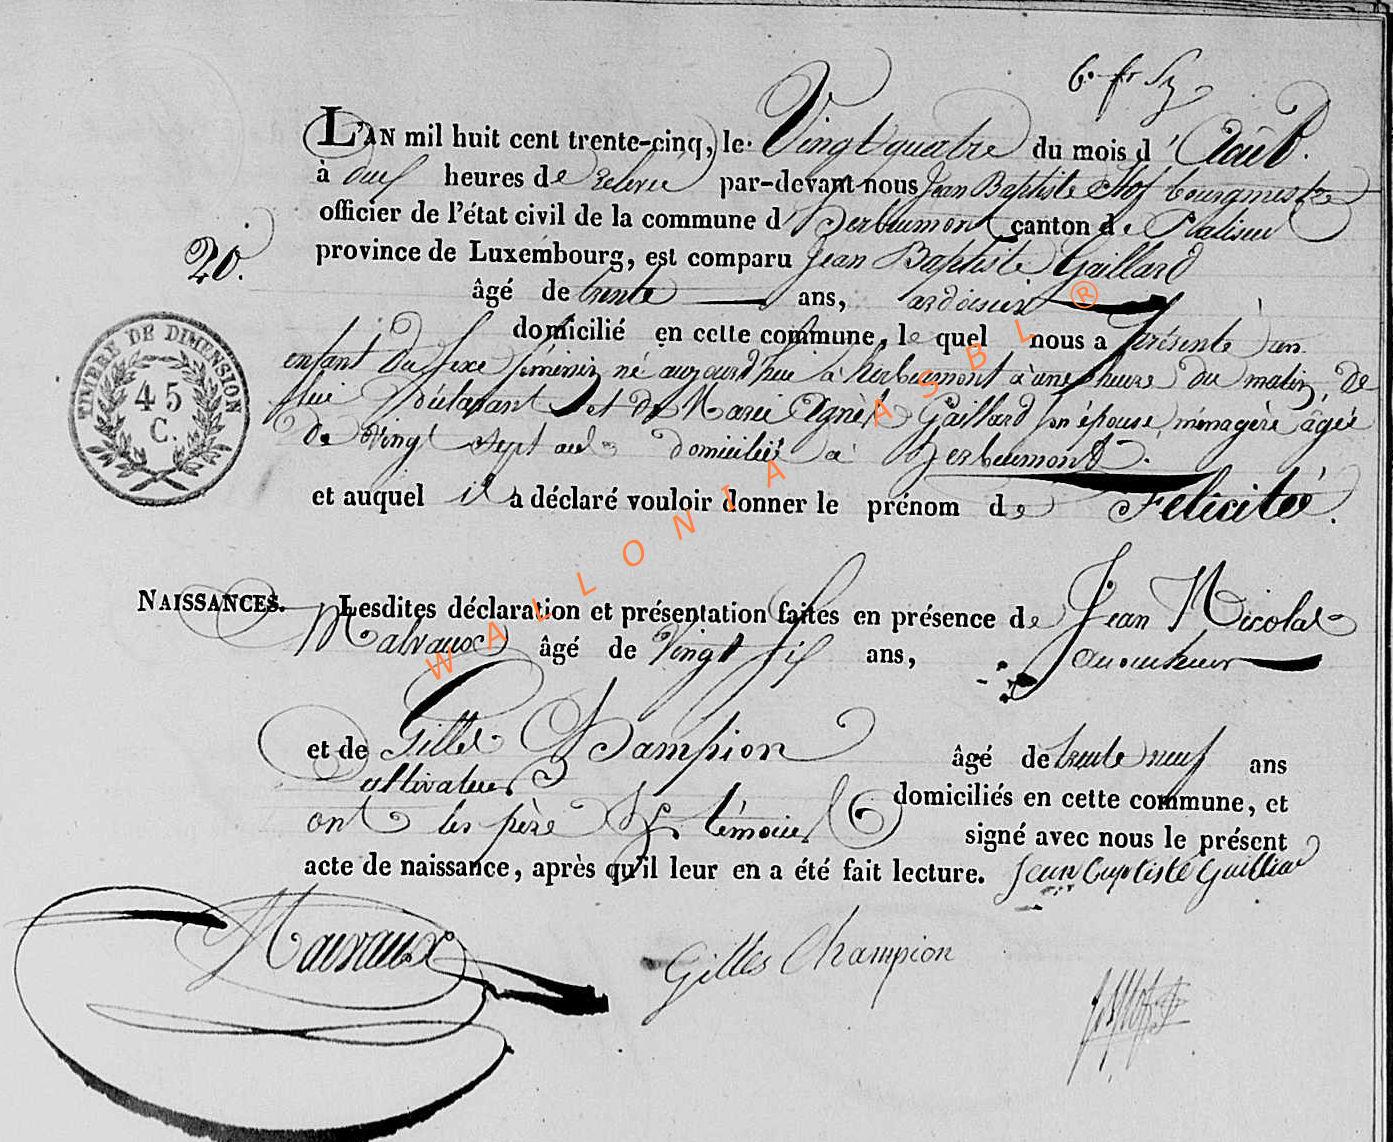 6. fr
L'AN mil huit cent trente-cinq, le Vingt quatre du mois d'Août.
à heures de relevée par-devant nous Jean Baptiste bourgmestre
officier de l'état civil de la commune d'Herbeumont canton de Paliseul
20.
province de Luxembourg, est comparu Jean Baptiste Gaillard
âgé de trente ans, ardoisier
domicilié en cette commune, le quel nous a présenté un
enfant du sexe féminin né aujourd'hui à herbeumont à une heure du matin de
lui déclarant et de Marie Agnès Gaillard son épouse, ménagère âgée
de vingt sept ans domiciliée à herbeumont.
et auquel il a déclaré vouloir donner le prénom de Félicité.
TIMBRE DE DIMENSION
45
C.
NAISSANCES.
Lesdites déclaration et présentation faites en présence de Jean Nicolas
Malvaux âgé de Vingt six ans,
et de Gilles Champion âgé de trente neuf ans
cultivateur domiciliés en cette commune, et
ont les père & témoins signé avec nous le présent
acte de naissance, après qu'il leur en a été fait lecture. Jean Baptiste
Malvaux
Gilles Champion
WALLONIA ASBL ®